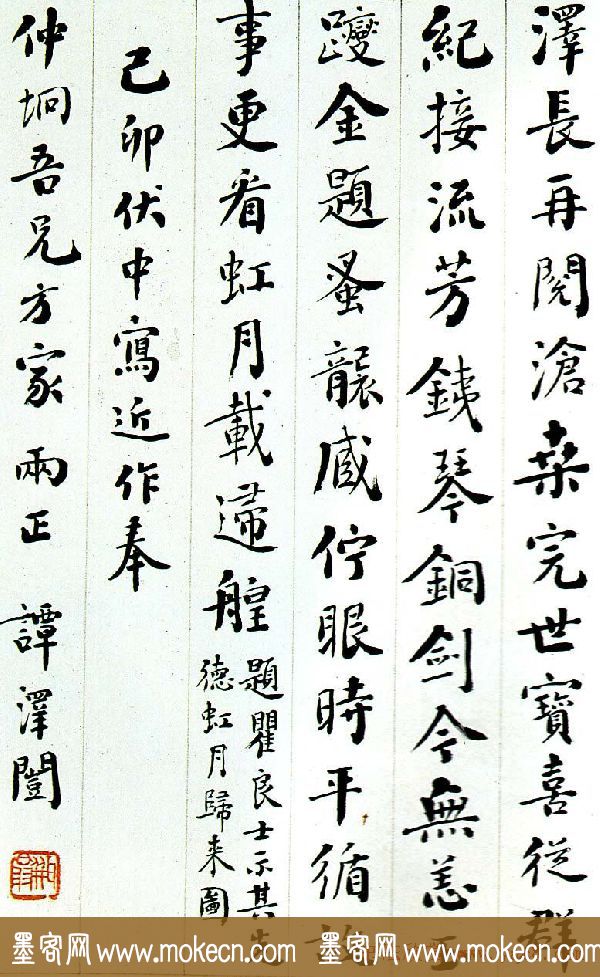 澤長再閱滄桑完世寶喜從群
紀接流芳銕琴銅劍今無恙玉
躞金題蚤襲臧佇眼時平循故
事更看虹月載歸艎
題瞿良士示其先
德虹月歸来圖
己卯伏中寫近作奉
仲坰吾兄方家兩正 譚澤闓
墨客网 www.mokecn.com 墨客网 www.mokecn.com